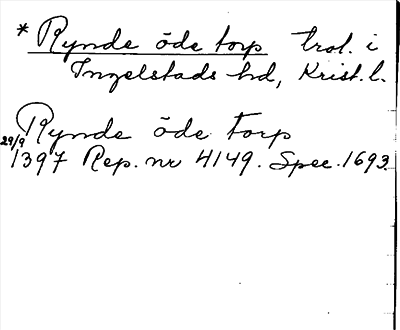 * Rynde öde torp trol. i
Ingelstads hd, Krist. l.
Rynde öde torp
29/9
1397 Rep. nr 4149. Spec. 1693.